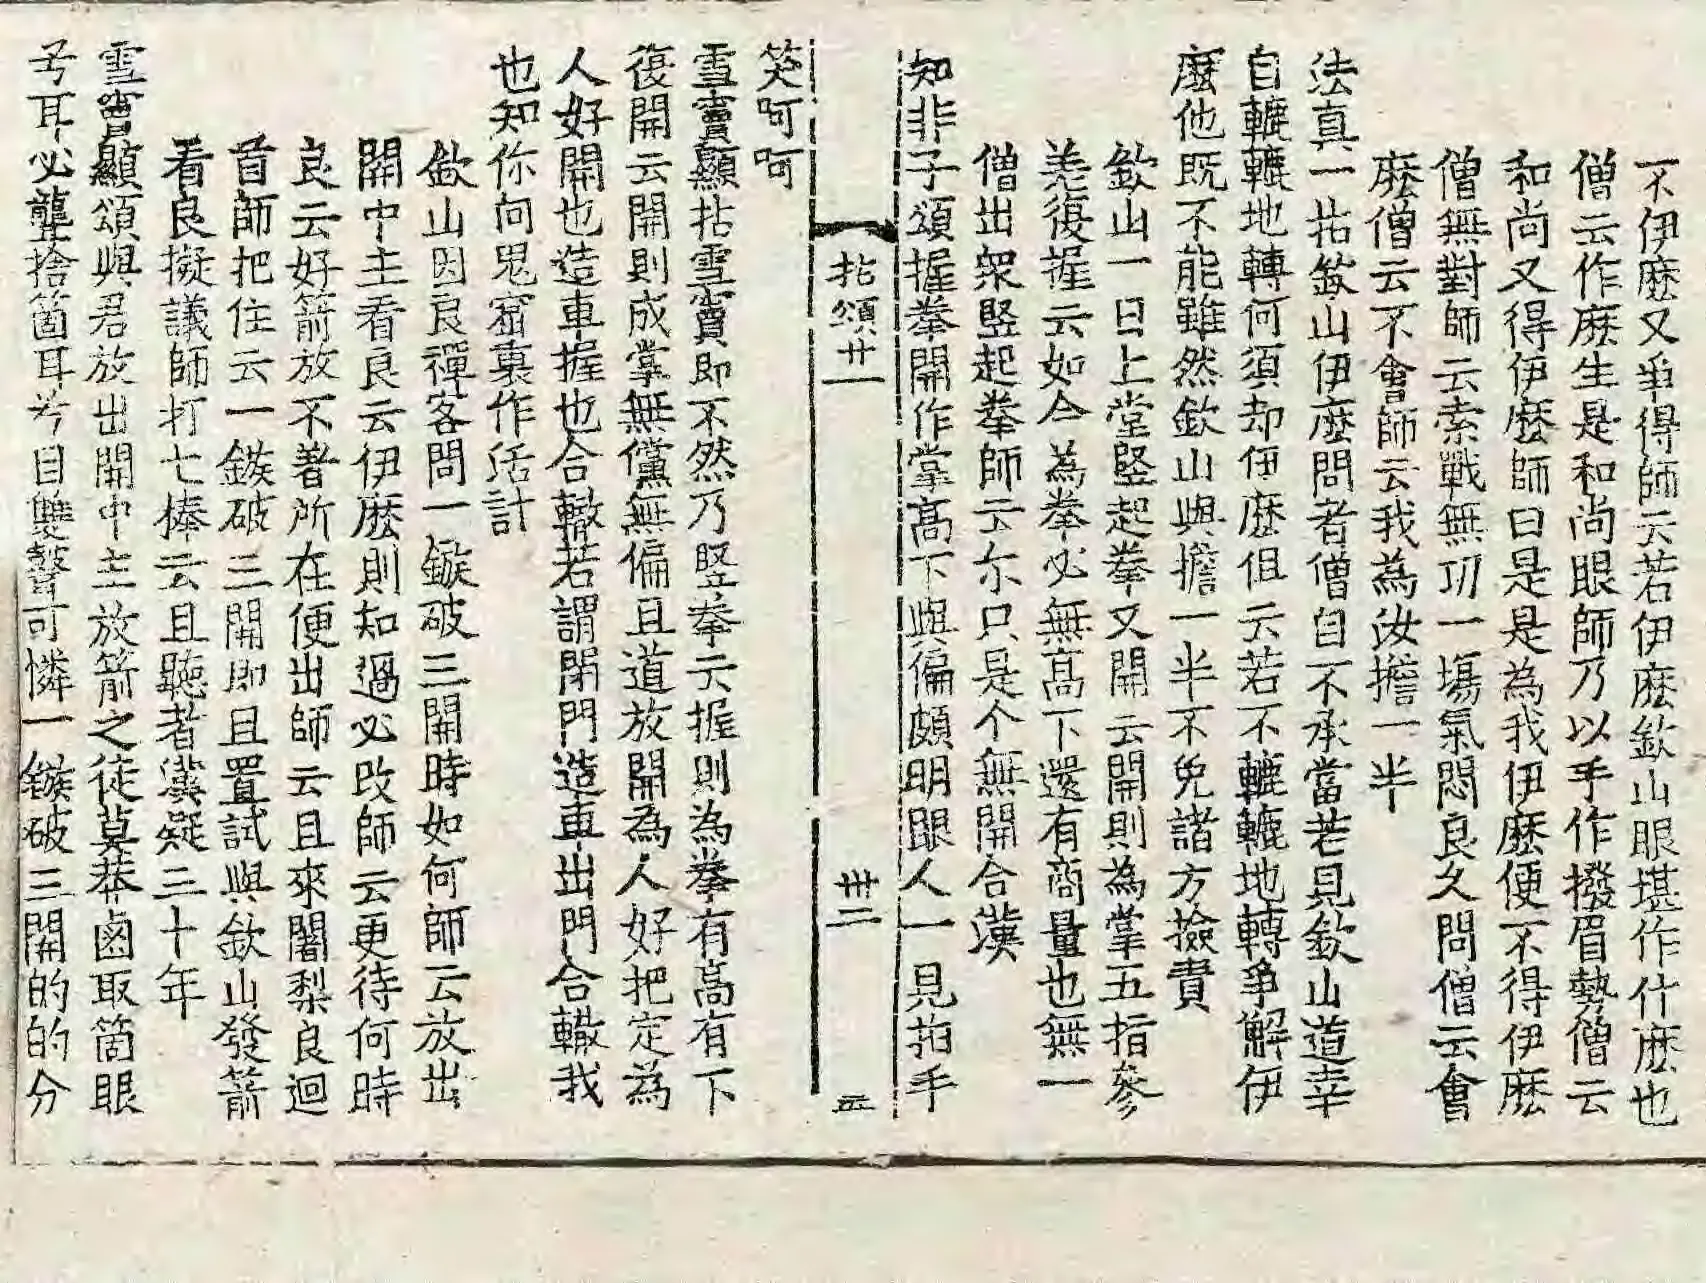 不伊麽又爭得師云若伊麽欽山眼堪作什麽也
僧云作麽生是和尚眼師乃以手作撥眉勢僧云
和尚又得伊麽師曰是是爲我伊麽便不得伊麽
僧無對師云索戰無功一塲氣悶良久問僧云會
麽僧云不會師云我為汝擔一半
法真一拈欽山伊麽問者僧自不承當若見欽山道幸
自轆轆地轉何須却伊麽但云若不轆轆地轉爭解伊
麽他既不能雖然欽山與擔一半不免諸方撿責
欽山一日上堂竪起拳又開云開則為掌五指參
差復握云如今為拳必無高下還有商量也無一
僧出衆竪起拳師云尓只是个無開合漢
知非子頌握拳開作掌高下與偏頗明眼人一見拍手
拈頌廿一
卌二
笑呵呵
雪竇顯拈雪竇即不然乃竪拳云握則為拳有高有下
復開云開則成掌無儻無偏且道放開為人好把定為
人好開也造車握也合轍若謂閉門造車出門合轍我
也知你向鬼窟裏作活計
欽山因良禪客問一鏃破三開時如何師云放出
開中主看良云伊麽則知過必改師云更待何時
良云好箭放不著所在便出師云且來闍梨良迴
首師把住云一鏃破三開即且置試與欽山發箭
看良擬議師打七捧云且聽者漢疑三十年
雪竇顯頌與君放出開中主放箭之徒莫莽鹵取箇眼
兮耳必聾捨箇耳兮目雙瞽可憐一鏃破三開的的分